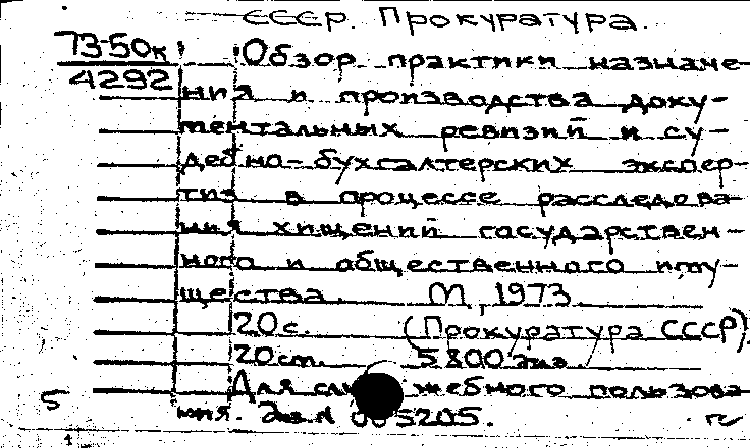 СССР. Прокуратура.
73-50к
4292
Обзор практики назначе-
ния и производства доку-
ментальных ревизий и су-
дебно-бухгалтерских экспер-
тиз в процессе расследова-
ния хищений государствен-
ного и общественного иму-
щества. М., 1973.
20 с. (Прокуратура СССР).
20 см. 5800 экз.
Для служебного пользова-
ния. Экз. № 005205.
5
1